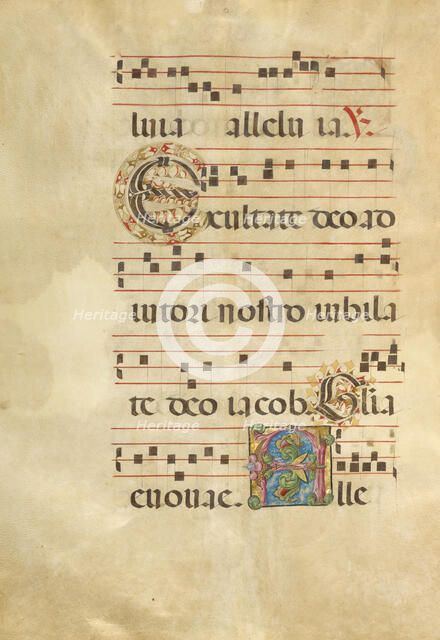 luia allelu ia. ℣.
Exultate deo ad
iutori nostro iubila
te deo iacob. Glia
euouae. Alle
Heritage Heritage Heritage
Heritage Heritage
Heritage Heritage Heritage
©